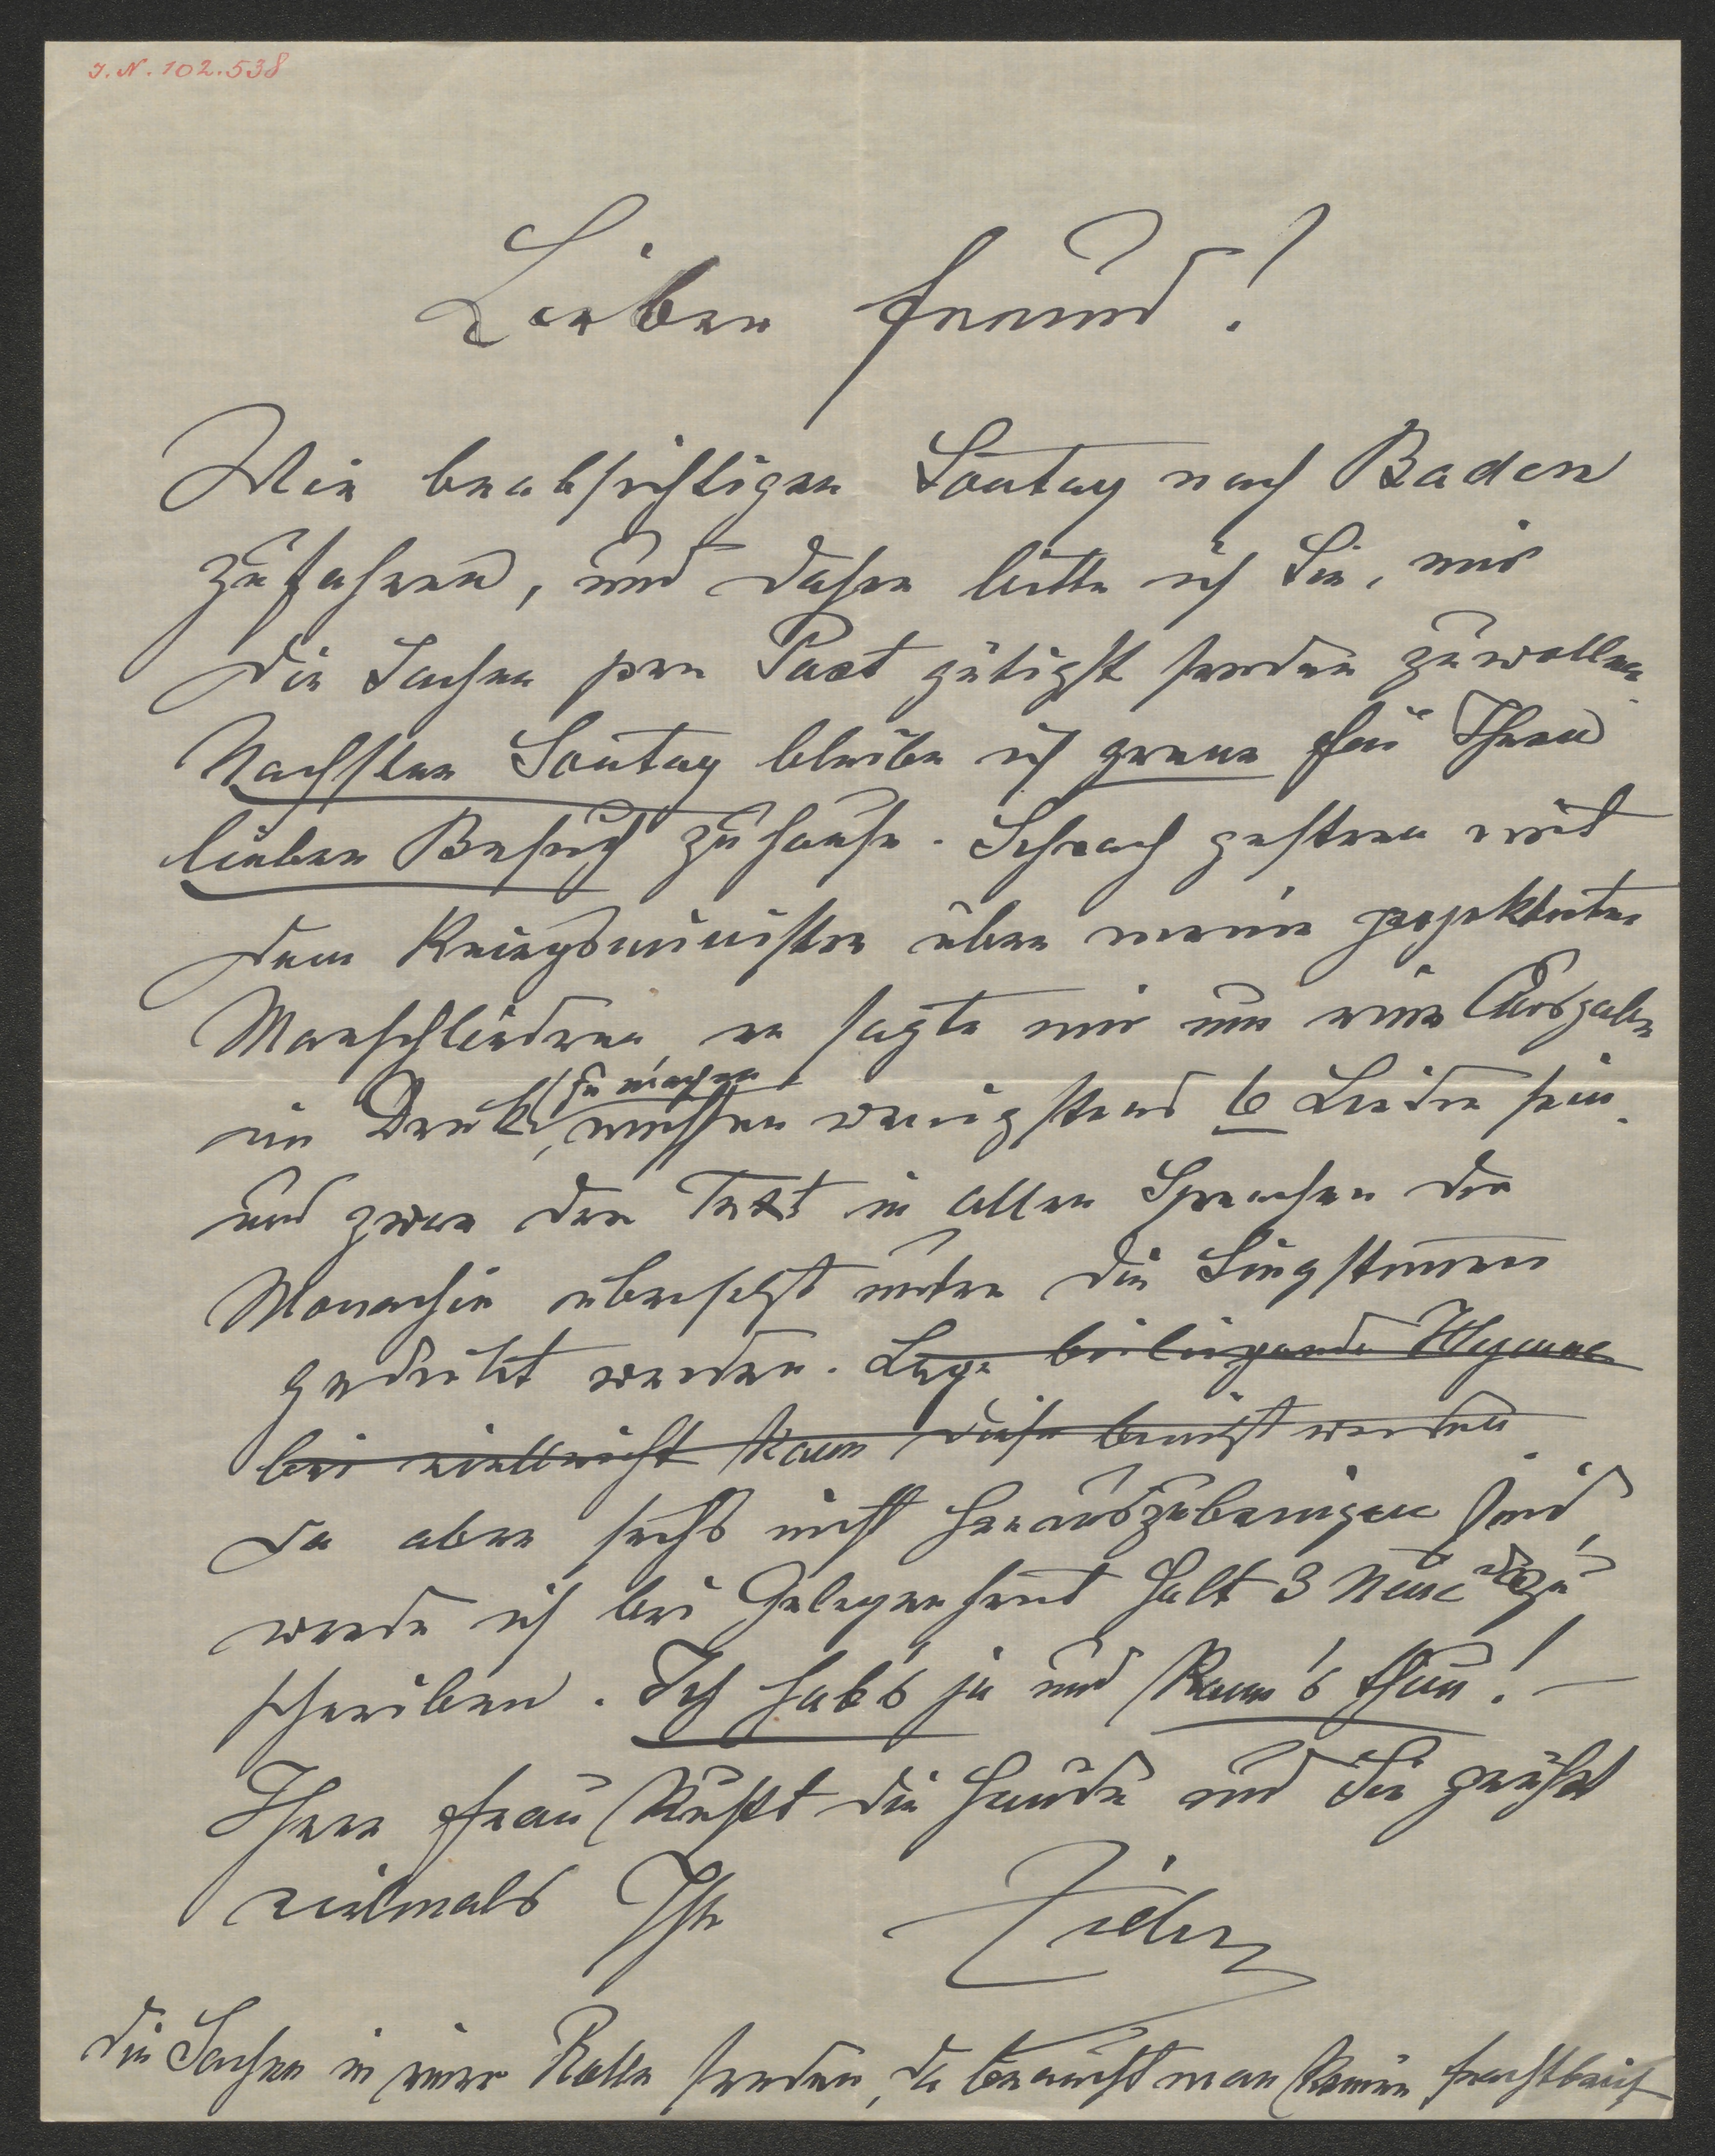 J. N. 102.538
Lieber Freund!
Wir beabsichtigen Sontag nach Baden
zu fahren, und daher bitte ich Sie, mir
die Sachen per Post gütigst senden zu wollen.
Nachsten Sontag bleibe ich gerne für Ihren
lieben Besuch zu hause. Sprach gestern mit
dem Kriegsminister über meine projektirten
Marschlieder, er sagte mir um eine Ausgabe
im Druk zu machen, müssten wenigstens 6 Lieder sein.
und zwar der Text in allen Sprachen der
Monarchie übersetzt unter die Singstimmen
gedrukt werden. Lege beiliegende Hymne
bei vielleicht kann diese benützt werden.
da aber sechs nicht herauszubringen sind,
werde ich bei Gelegenheit halt 3 Neue dazu
schreiben. Ich hab's ja und kann's thun! —
Ihrer Frau küsst die Hände und Sie grüsst
vielmals Ihr Ziehrer
die Sachen in einer Rolle senden, da braucht man keinen Frachtbrief